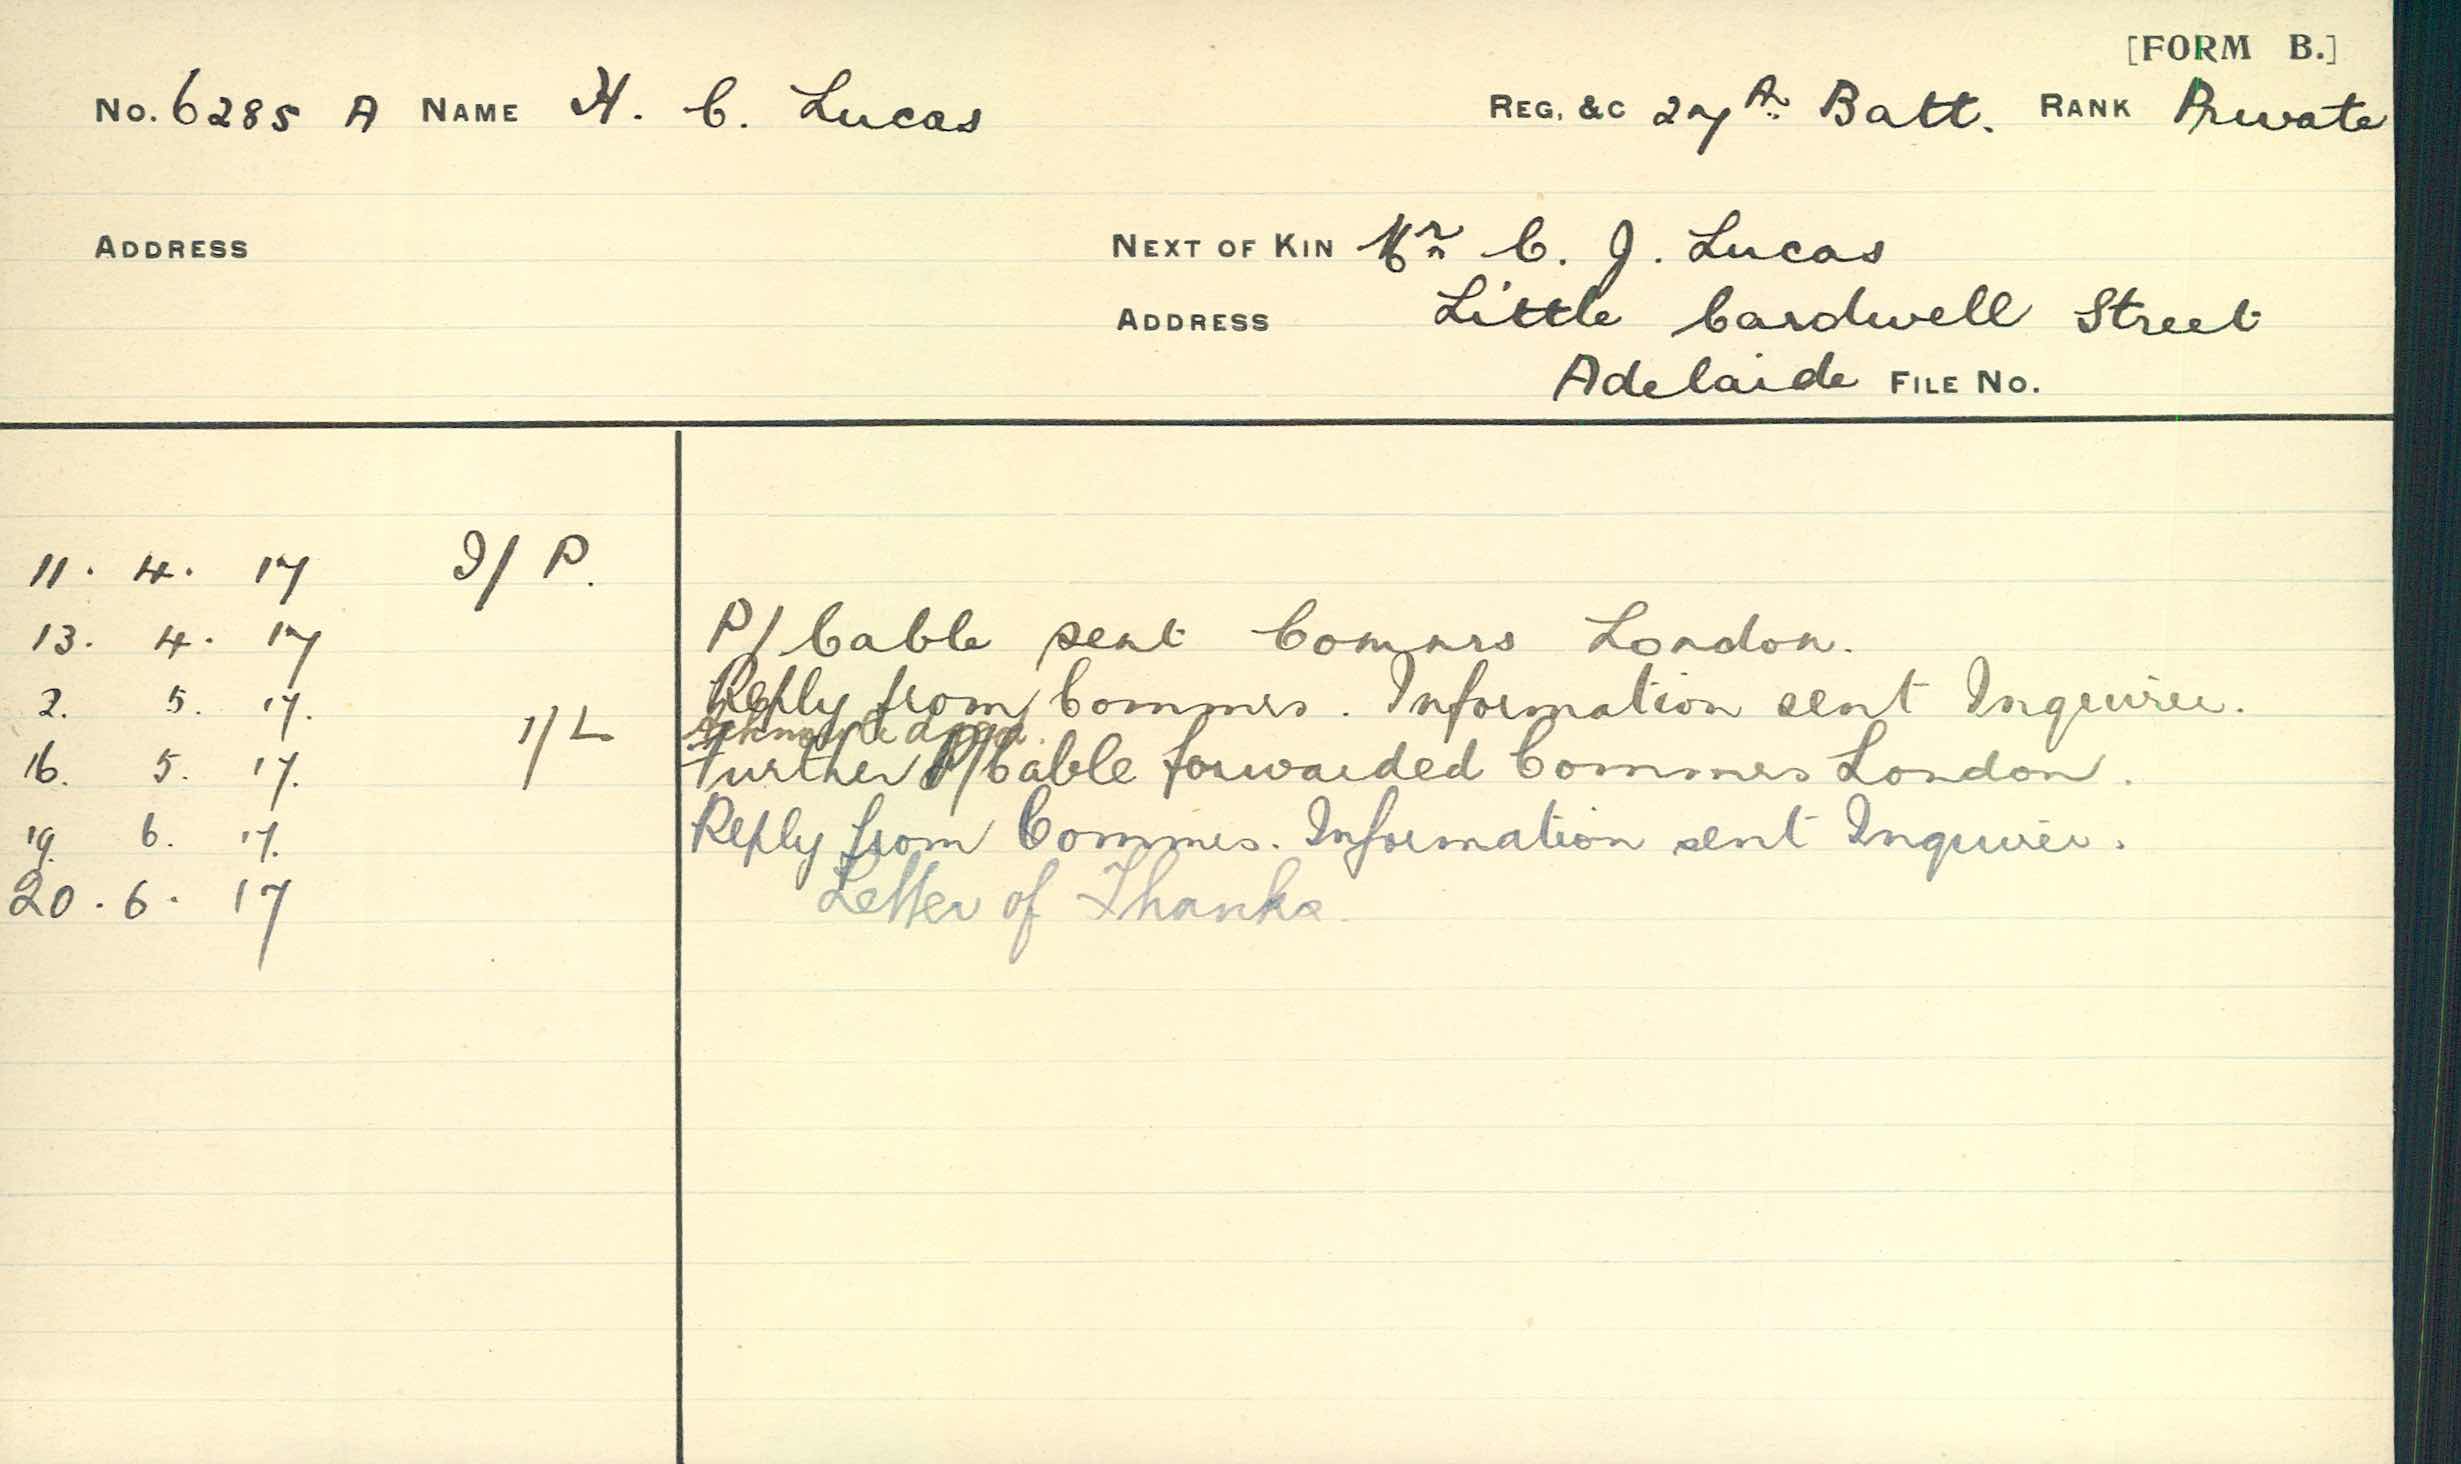 [FORM B.]
No. 6285 A NAME H. C. Lucas REG. &C 27th Batt. RANK Private
ADDRESS NEXT OF KIN Mr C. J. Lucas
ADDRESS Little Cardwell Street
Adelaide FILE No.
11. 4. 17 I/P.
13. 4. 17 P/Cable sent Commrs London.
2. 5. 17. Reply from Commrs. Information sent Inquirer.
1/L Acknowledged.
16. 5. 17. Further P/Cable forwarded Commrs London.
19. 6. 17. Reply from Commrs. Information sent Inquirer.
20. 6. 17 Letter of Thanks.